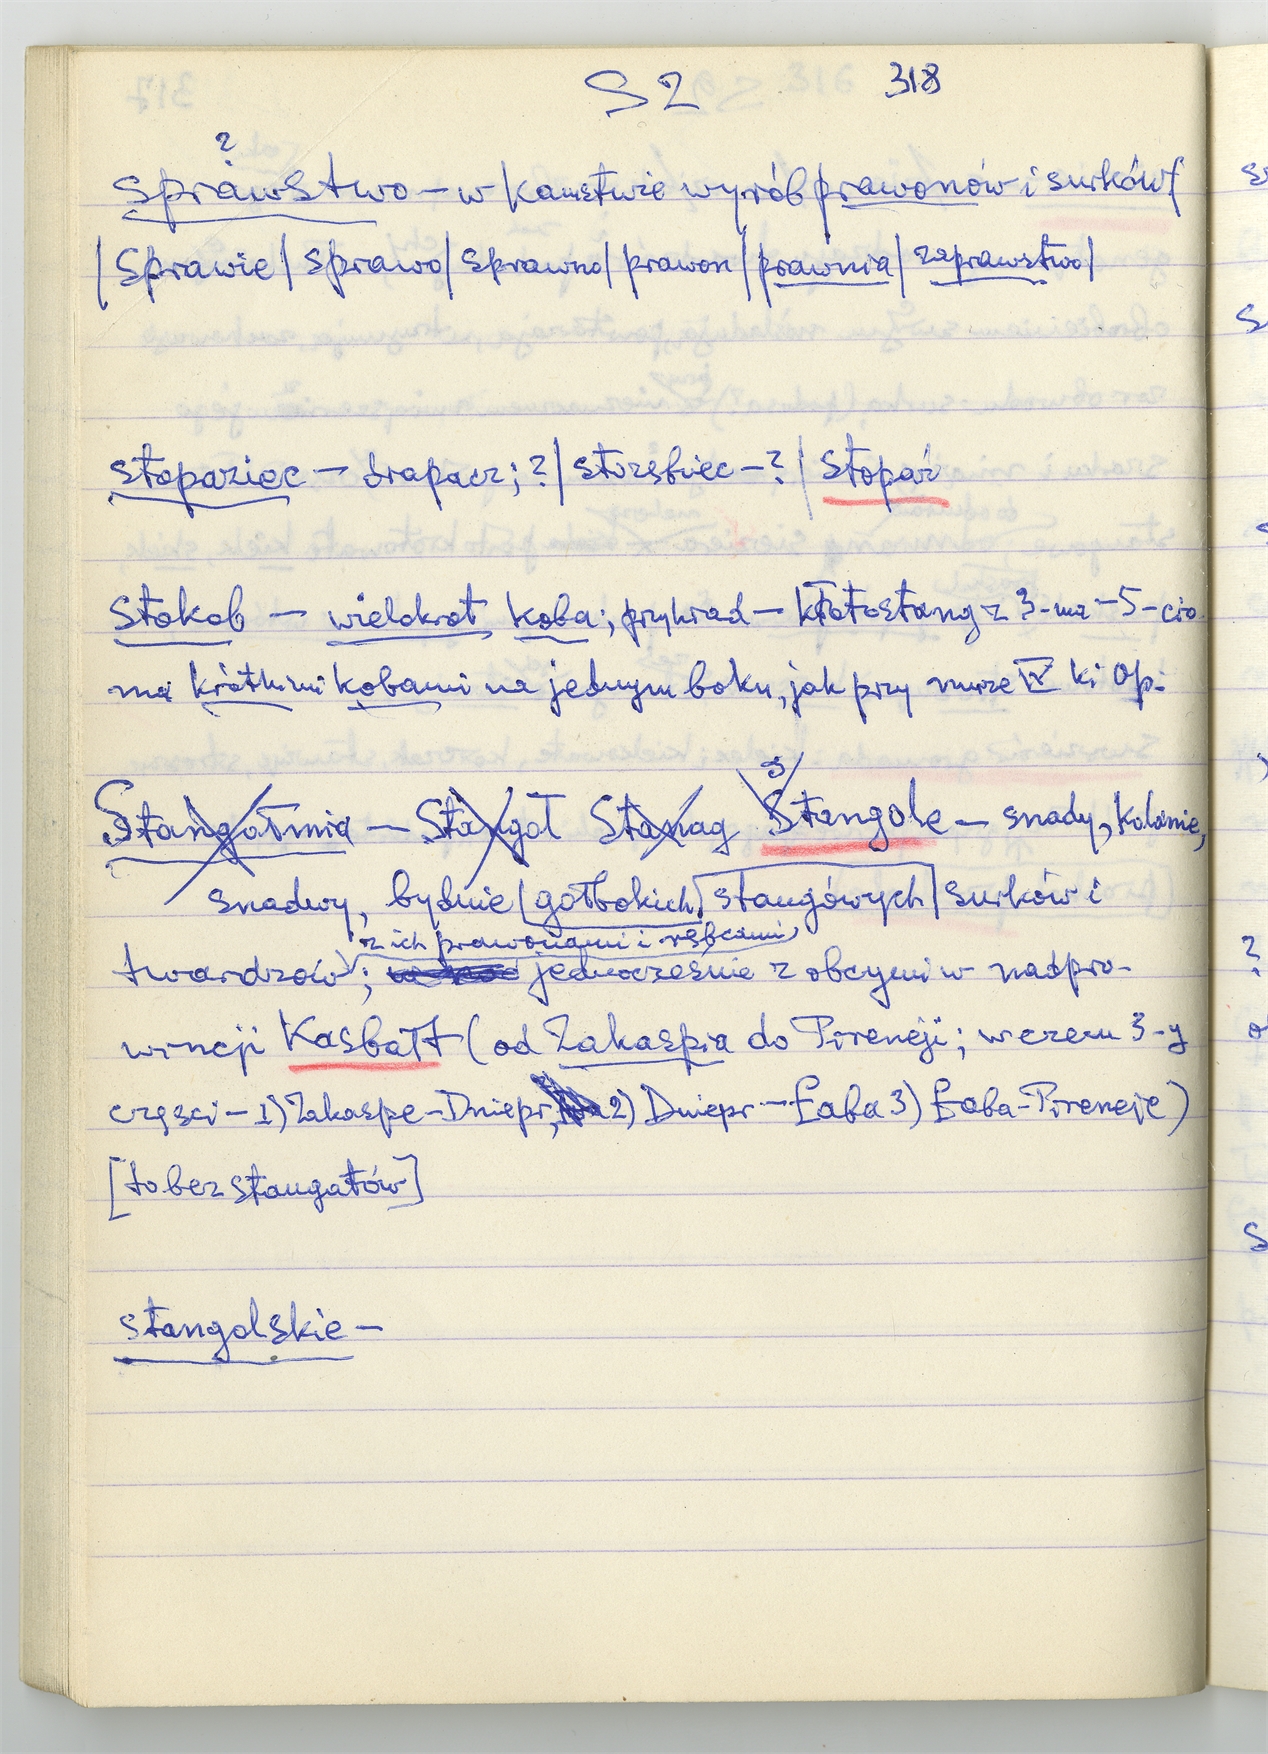 S2 318
?
sprawstwo – w kamstwie wyrób prawonów i surków
|sprawie| sprawo| sprawno| prawon| prawnia| zaprawstwo|
stopaziec – drapacz; ?| – ?| stopaź
stokob – wielokrot, koba; przykład – z 3-ma – 5-cio
ma krótkimi kobami na jednym boku, jak przy murze IV ki Op:
Stangołmia – Stangoł Stanag Stangole – snady, kolonie,
s
snadwy, bydnie |gołbokich| stangówych| surków i
z ich prawonami i rębcami
twardzów; jednocześnie z obcymi w nadpro-
wincji Kasbałt (od Zakaspia do Pireneji; w czem 3-y
części – 1) Zakaspe – Dniepr, 2) Dniepr – Łaba 3) Łaba – Pireneje)
[to bez stangatów]
stangolskie –